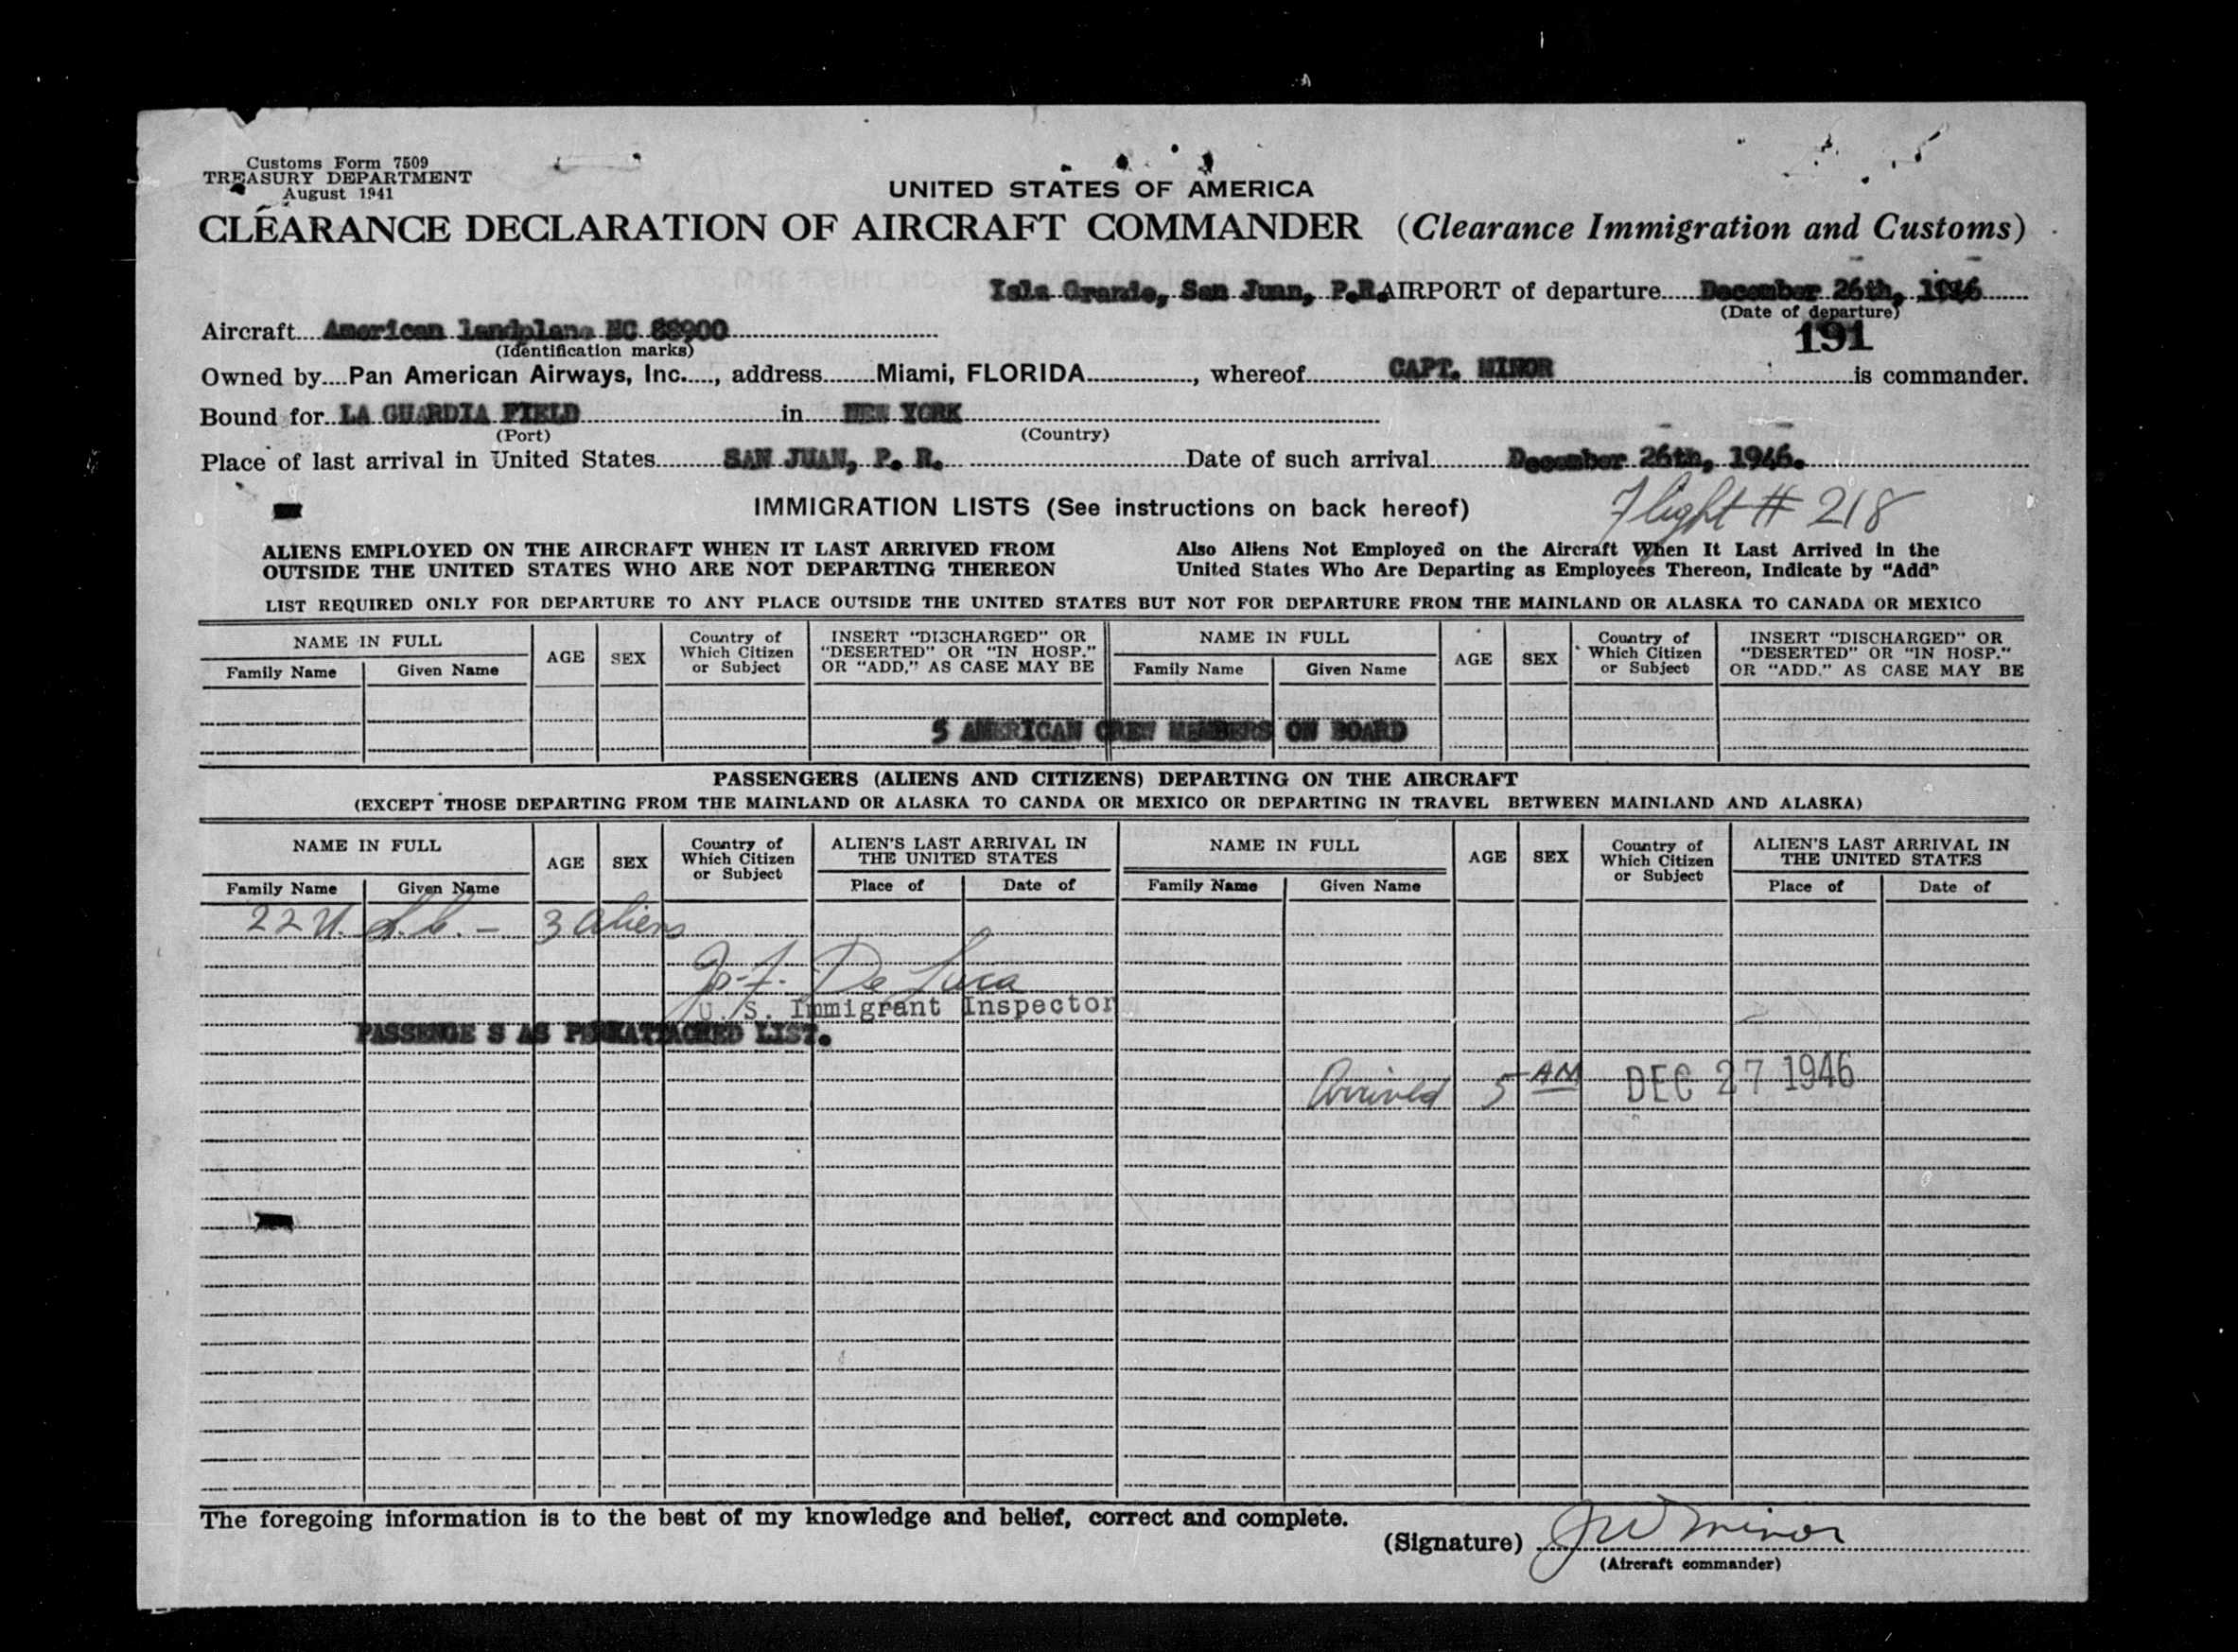 Customs Form 7509
TREASURY DEPARTMENT
August 1941
UNITED STATES OF AMERICA
CLEARANCE DECLARATION OF AIRCRAFT COMMANDER (Clearance Immigration and Customs)
Isla Grande, San Juan, P.R. AIRPORT of departure December 26th, 1946
(Date of departure)
Aircraft American landplane NC 88900
(Identification marks)
191
Owned by Pan American Airways, Inc., address Miami, FLORIDA, whereof CAPT. MINOR is commander.
Bound for LA GUARDIA FIELD in NEW YORK
(Port) (Country)
Place of last arrival in United States SAN JUAN, P. R. Date of such arrival December 26th, 1946.
IMMIGRATION LISTS (See instructions on back hereof)
Flight # 218
ALIENS EMPLOYED ON THE AIRCRAFT WHEN IT LAST ARRIVED FROM
OUTSIDE THE UNITED STATES WHO ARE NOT DEPARTING THEREON
Also Aliens Not Employed on the Aircraft When It Last Arrived in the
United States Who Are Departing as Employees Thereon, Indicate by "Add"
LIST REQUIRED ONLY FOR DEPARTURE TO ANY PLACE OUTSIDE THE UNITED STATES BUT NOT FOR DEPARTURE FROM THE MAINLAND OR ALASKA TO CANADA OR MEXICO
NAME IN FULL
Family Name Given Name
AGE
SEX
Country of
Which Citizen
or Subject
INSERT "DISCHARGED" OR
"DESERTED" OR "IN HOSP."
OR "ADD," AS CASE MAY BE
NAME IN FULL
Family Name Given Name
AGE
SEX
Country of
Which Citizen
or Subject
INSERT "DISCHARGED" OR
"DESERTED" OR "IN HOSP."
OR "ADD," AS CASE MAY BE
5 AMERICAN CREW MEMBERS ON BOARD
PASSENGERS (ALIENS AND CITIZENS) DEPARTING ON THE AIRCRAFT
(EXCEPT THOSE DEPARTING FROM THE MAINLAND OR ALASKA TO CANDA OR MEXICO OR DEPARTING IN TRAVEL BETWEEN MAINLAND AND ALASKA)
NAME IN FULL
Family Name Given Name
AGE
SEX
Country of
Which Citizen
or Subject
ALIEN'S LAST ARRIVAL IN
THE UNITED STATES
Place of Date of
NAME IN FULL
Family Name Given Name
AGE
SEX
Country of
Which Citizen
or Subject
ALIEN'S LAST ARRIVAL IN
THE UNITED STATES
Place of Date of
22 U.S.C. - 3 aliens
De Luca
U. S. Immigrant Inspector
PASSENGE S AS PER ATTACHED LIST.
Arrived 5 AM DEC 27 1946
The foregoing information is to the best of my knowledge and belief, correct and complete.
(Signature) JW Minor
(Aircraft commander)